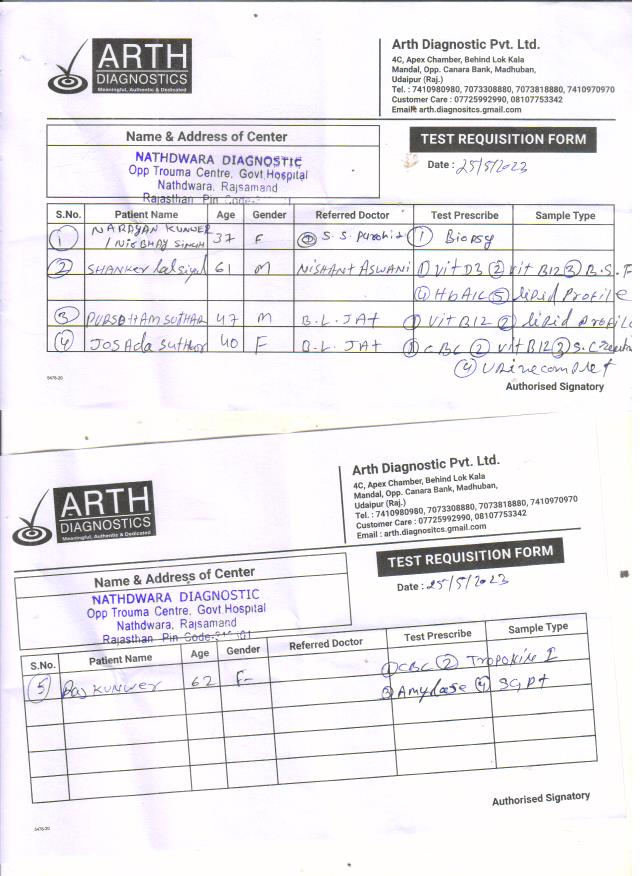 ARTH
DIAGNOSTICS
Meaningful, Authentic & Dedicated
Arth Diagnostic Pvt. Ltd.
4C, Apex Chamber, Behind Lok Kala
Mandal, Opp. Canara Bank, Madhuban,
Udaipur (Raj.)
Tel. : 7410980980, 7073308880, 7073818880, 7410970970
Customer Care : 07725992990, 08107753342
Email : arth.diagnositcs.gmail.com
Name & Address of Center
TEST REQUISITION FORM
NATHDWARA DIAGNOSTIC
Opp Trouma Centre, Govt Hospital
Nathdwara, Rajsamand
Rajasthan Pin Code-
Date : 25/5/2023
S.No. Patient Name Age Gender Referred Doctor Test Prescribe Sample Type
1 NARAYAN KUNWER / NIRBHAY SINGH 37 F S. S. Purohit 1 Biopsy
2 SHANKER lal 61 M NISHANT ASWANI 1 Vit D3 2 Vit B12 3 B.S.F
4 HbA1C 5 lipid Profile
3 PURSOHAM SUTHAR 47 M B.L. JAT 1 Vit B12 2 lipid profile
4 JOSADA SUTHAR 40 F B.L. JAT 1 CBC 2 Vit B12 3 S.
4 Urine complet
5478-20
Authorised Signatory
ARTH
DIAGNOSTICS
Meaningful, Authentic & Dedicated
Arth Diagnostic Pvt. Ltd.
4C, Apex Chamber, Behind Lok Kala
Mandal, Opp. Canara Bank, Madhuban,
Udaipur (Raj.)
Tel. : 7410980980, 7073308880, 7073818880, 7410970970
Customer Care : 07725992990, 08107753342
Email : arth.diagnositcs.gmail.com
Name & Address of Center
TEST REQUISITION FORM
NATHDWARA DIAGNOSTIC
Opp Trouma Centre, Govt Hospital
Nathdwara, Rajsamand
Rajasthan Pin Code-
Date : 25/5/2023
S.No. Patient Name Age Gender Referred Doctor Test Prescribe Sample Type
1 CBC 2 Troponine I
5 Raj KUNWER 62 F 3 Amylase 4 SGPT
Authorised Signatory
5478-20